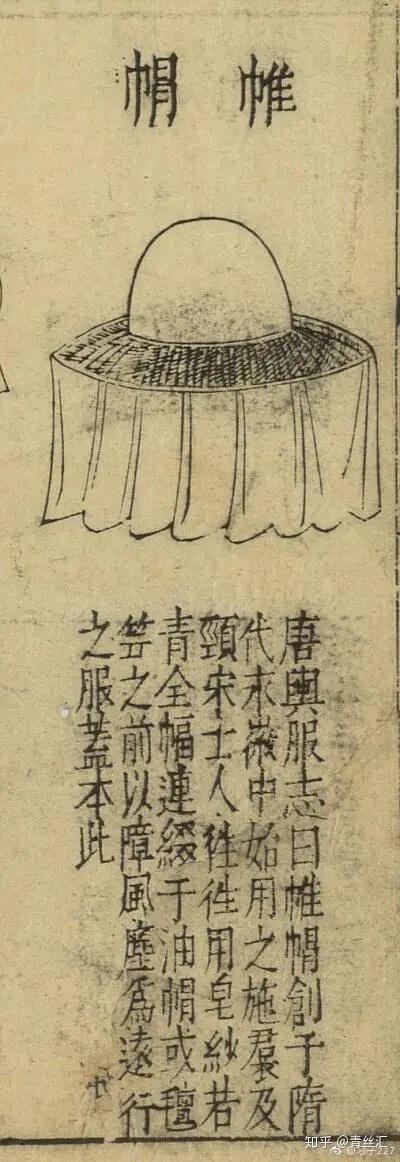 帷帽
唐輿服志曰帷帽創于隋
代永徽中始用之施裠及
頸宋士人徃徃用皂紗若
青全幅連綴于油帽或氊
笠之前以障風塵爲遠行
之服蓋本此
知乎 @青丝汇